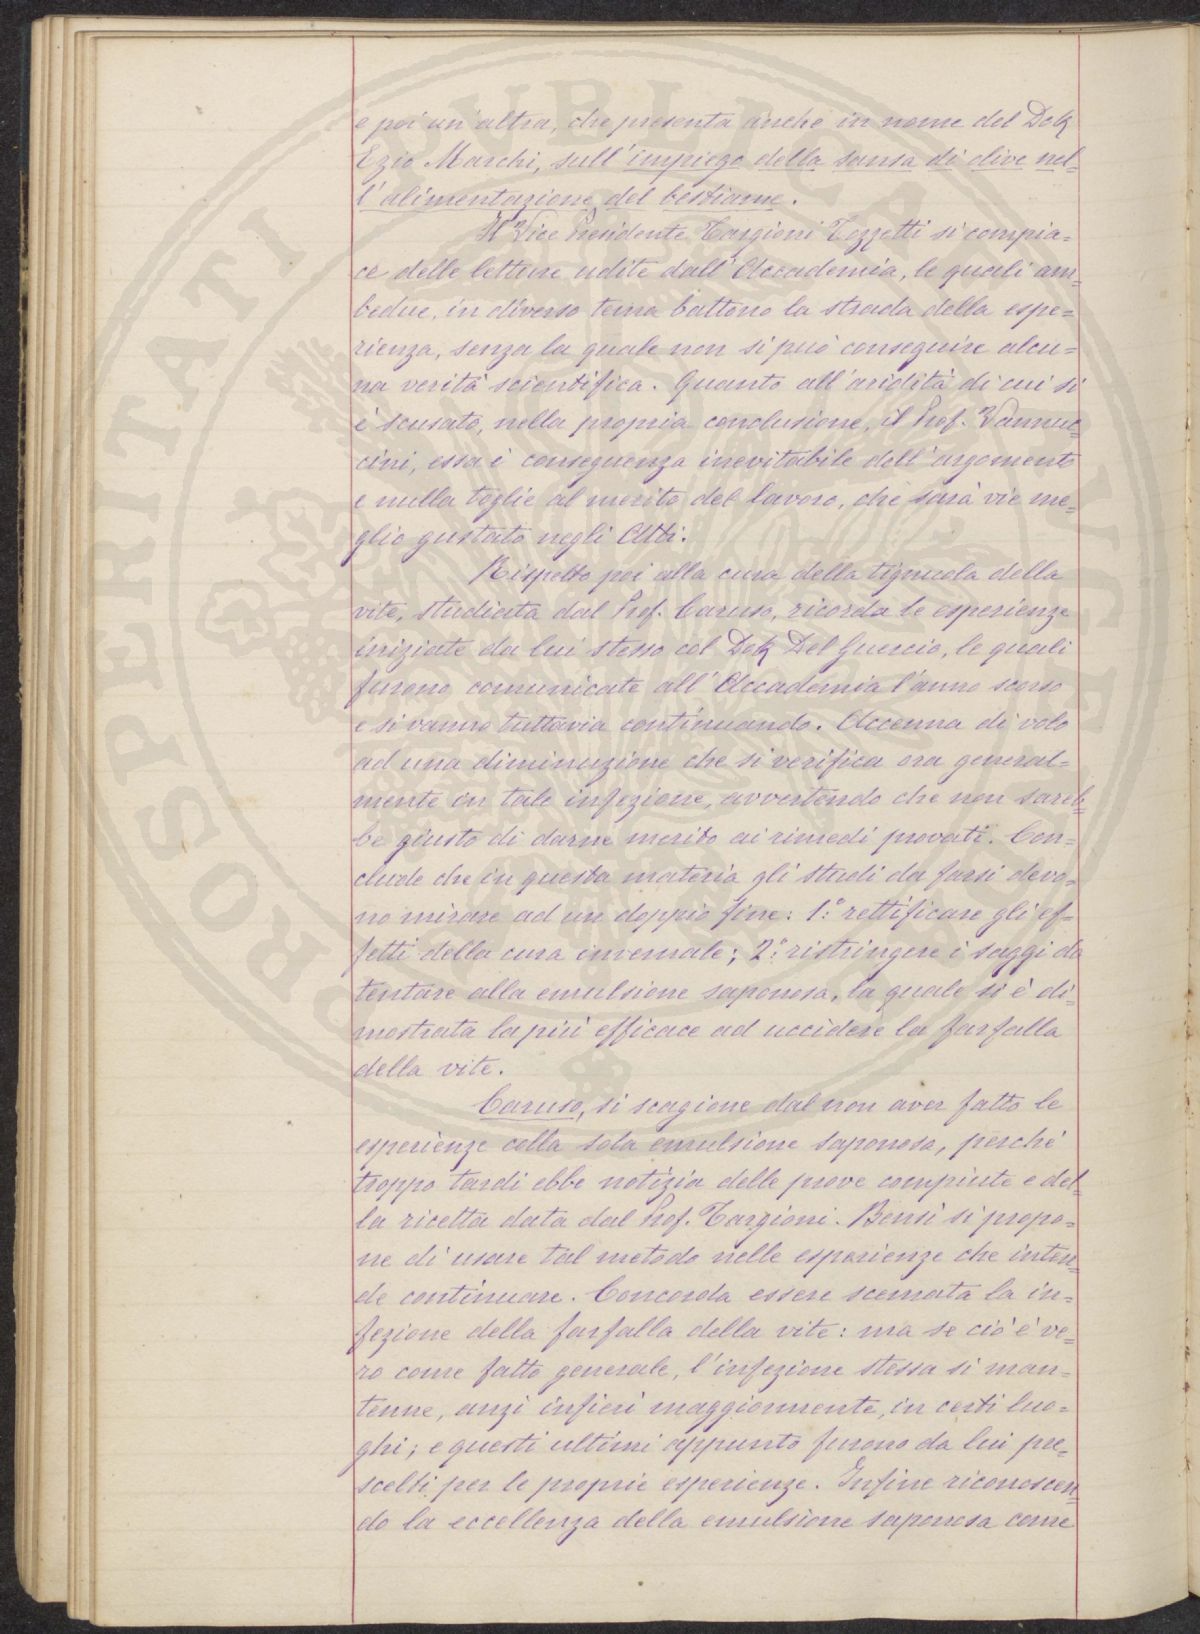 e poi un'altra, che presenta anche in nome del Dott.
Ezio Marchi, sull'impiego della sansa di olive nel-
l'alimentazione del bestiame.
Il Vice Presidente Targioni Tozzetti si compia=
ce delle letture udite dall'Accademia, le quali am=
bedue, in diverso tema battono la strada della espe=
rienza, senza la quale non si può conseguire alcu=
na verità scientifica. Quanto all'aridità di cui si
è scusato, nella propria conclusione, il Prof. Vannuc=
cini, essa è conseguenza inevitabile dell'argomento
e nulla toglie al merito del lavoro, che sarà vie me=
glio gustato negli Atti.
Rispetto poi alla cura della tignuola della
vite, studiata dal Prof. Caruso, ricorda le esperienze
iniziate da lui stesso col Dott. Del Guercio, le quali
furono comunicate all'Accademia l'anno scorso
e si vanno tuttavia continuando. Accenna di volo
ad una diminuzione che si verifica ora general=
mente in tale infezione, avvertendo che non sareb=
be giusto di darne merito ai rimedi provati. Con=
clude che in questa materia gli studi da farsi devo=
no mirare ad un doppio fine: 1.° rettificare gli ef=
fetti della cura invernale; 2.° ristringere i saggi da
tentare alla emulsione saponosa, la quale si è di=
mostrata la più efficace ad uccidere la farfalla
della vite.
Caruso, si scagione dal non aver fatto le
esperienze colla sola emulsione saponosa, perché
troppo tardi ebbe notizia delle prove compiute e del=
la ricetta data dal Prof. Targioni. Bensì si propo=
ne di usare tal metodo nelle esperienze che inten=
de continuare. Concorda essere scemata la in=
fezione della farfalla della vite: ma se ciò è ve=
ro come fatto generale, l'infezione stessa si man=
tenne, anzi infierì maggiormente, in certi luo=
ghi; e questi ultimi appunto furono da lui pre=
scelti per le proprie esperienze. Infine riconoscen=
do la eccellenza della emulsione saponosa come
PROSPERITATI PUBLICAE AUGENDAE